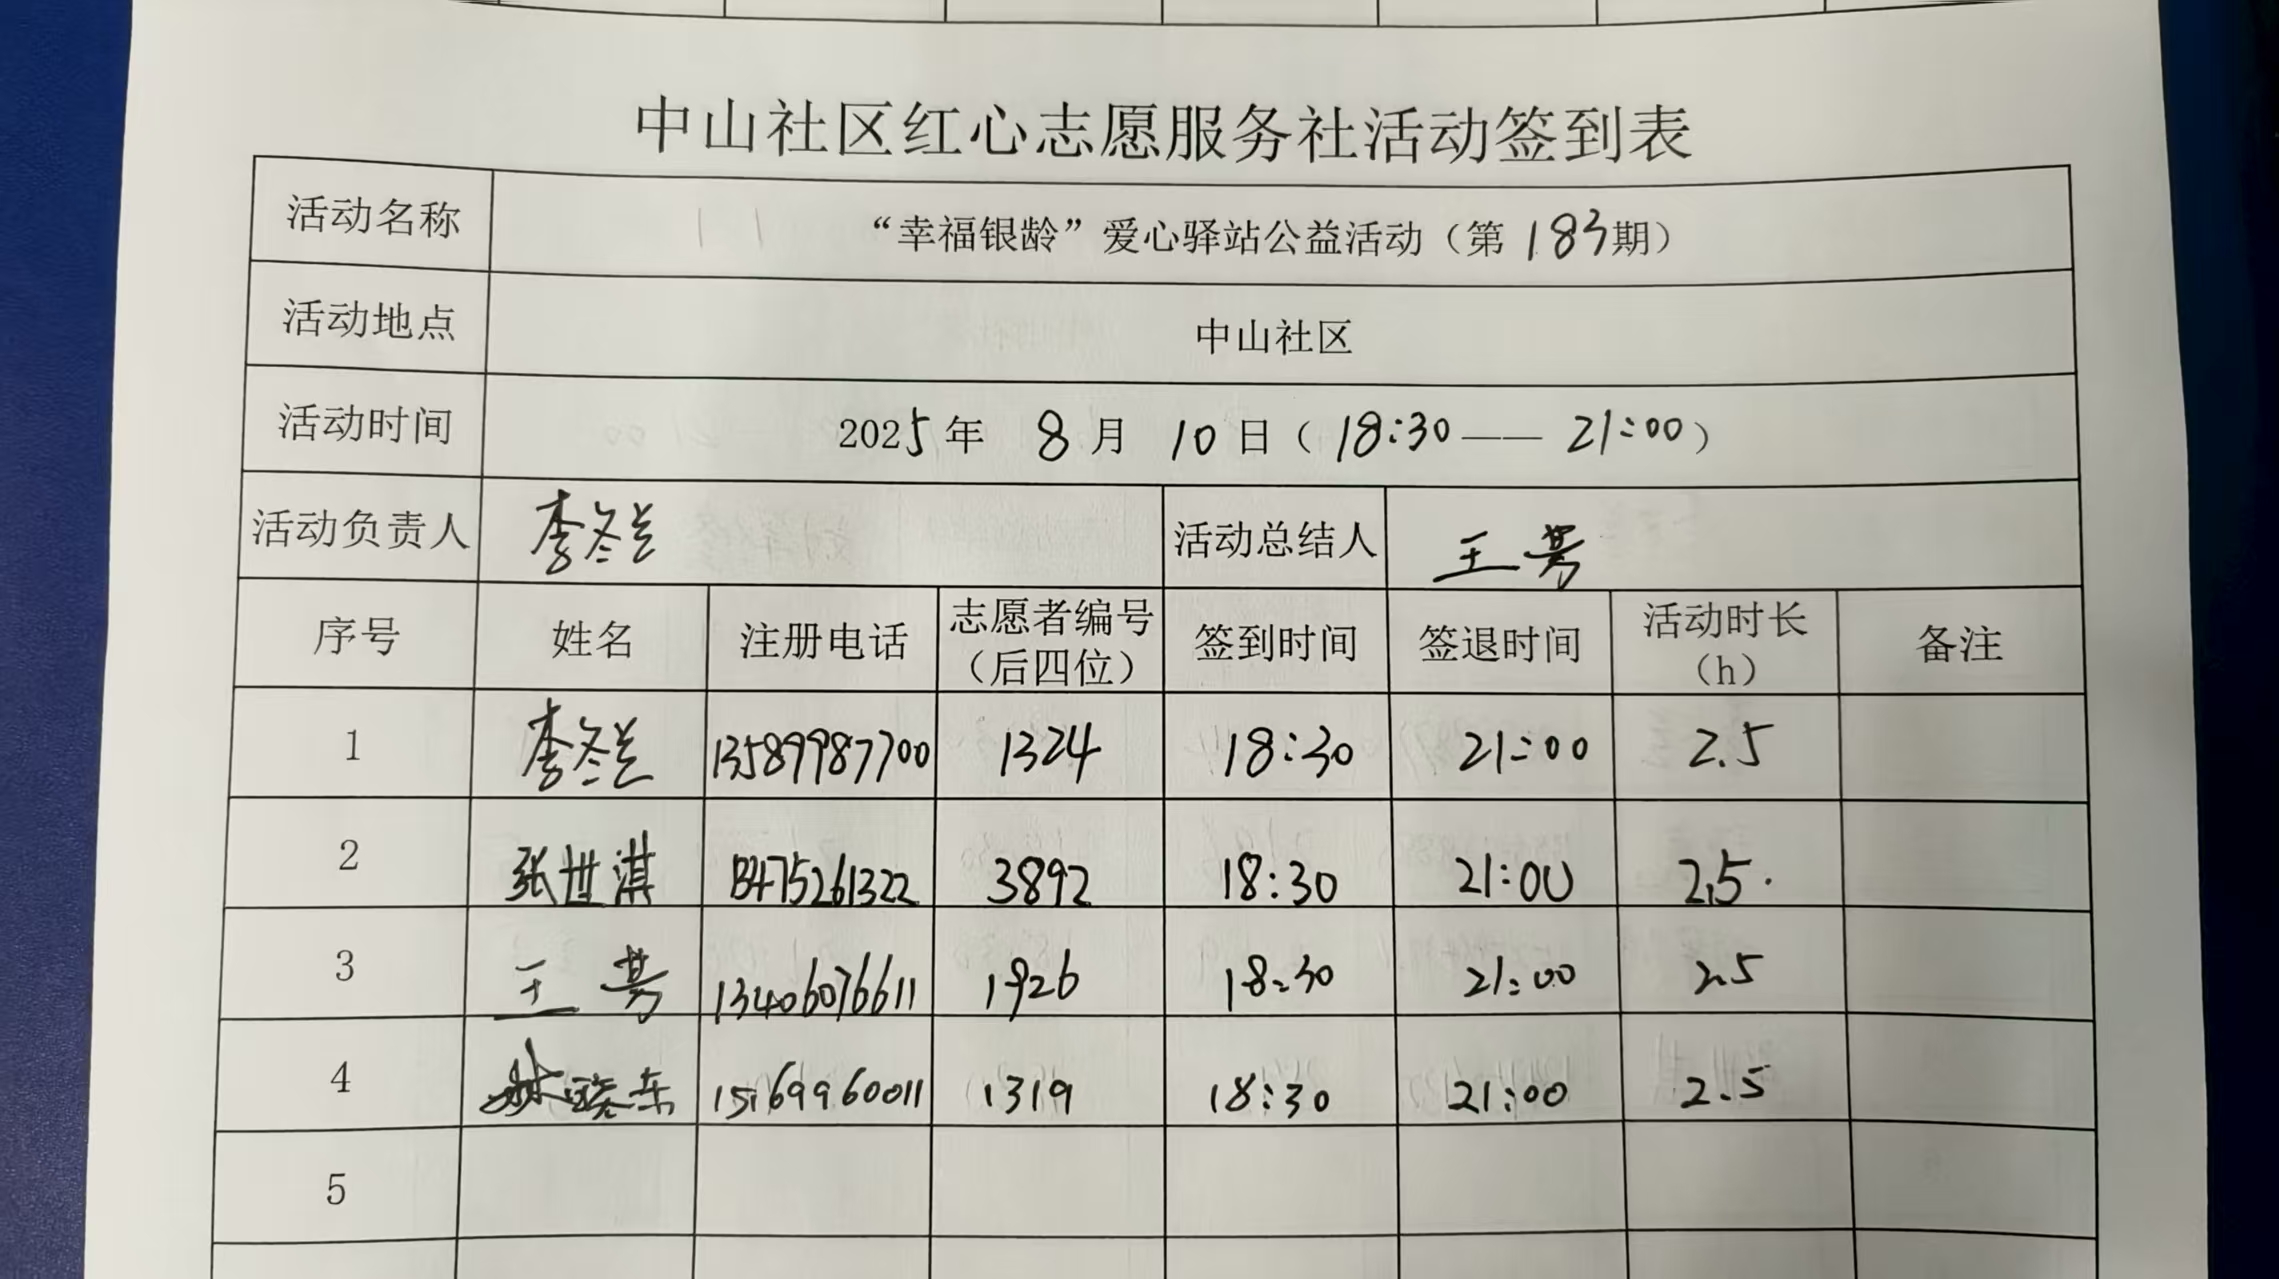 中山社区红心志愿服务社活动签到表
活动名称 “幸福银龄”爱心驿站公益活动（第183期）
活动地点 中山社区
活动时间 2025年 8月 10日（18:30—— 21:00）
活动负责人 李冬兰 活动总结人 王芳
序号 姓名 注册电话 志愿者编号（后四位） 签到时间 签退时间 活动时长（h） 备注
1 李冬兰 13589987700 1324 18:30 21:00 2.5
2 张世淇 13475261322 3892 18:30 21:00 2.5.
3 王芳 13406076611 1926 18:30 21:00 2.5
4 晓东 15169960011 1319 18:30 21:00 2.5
5